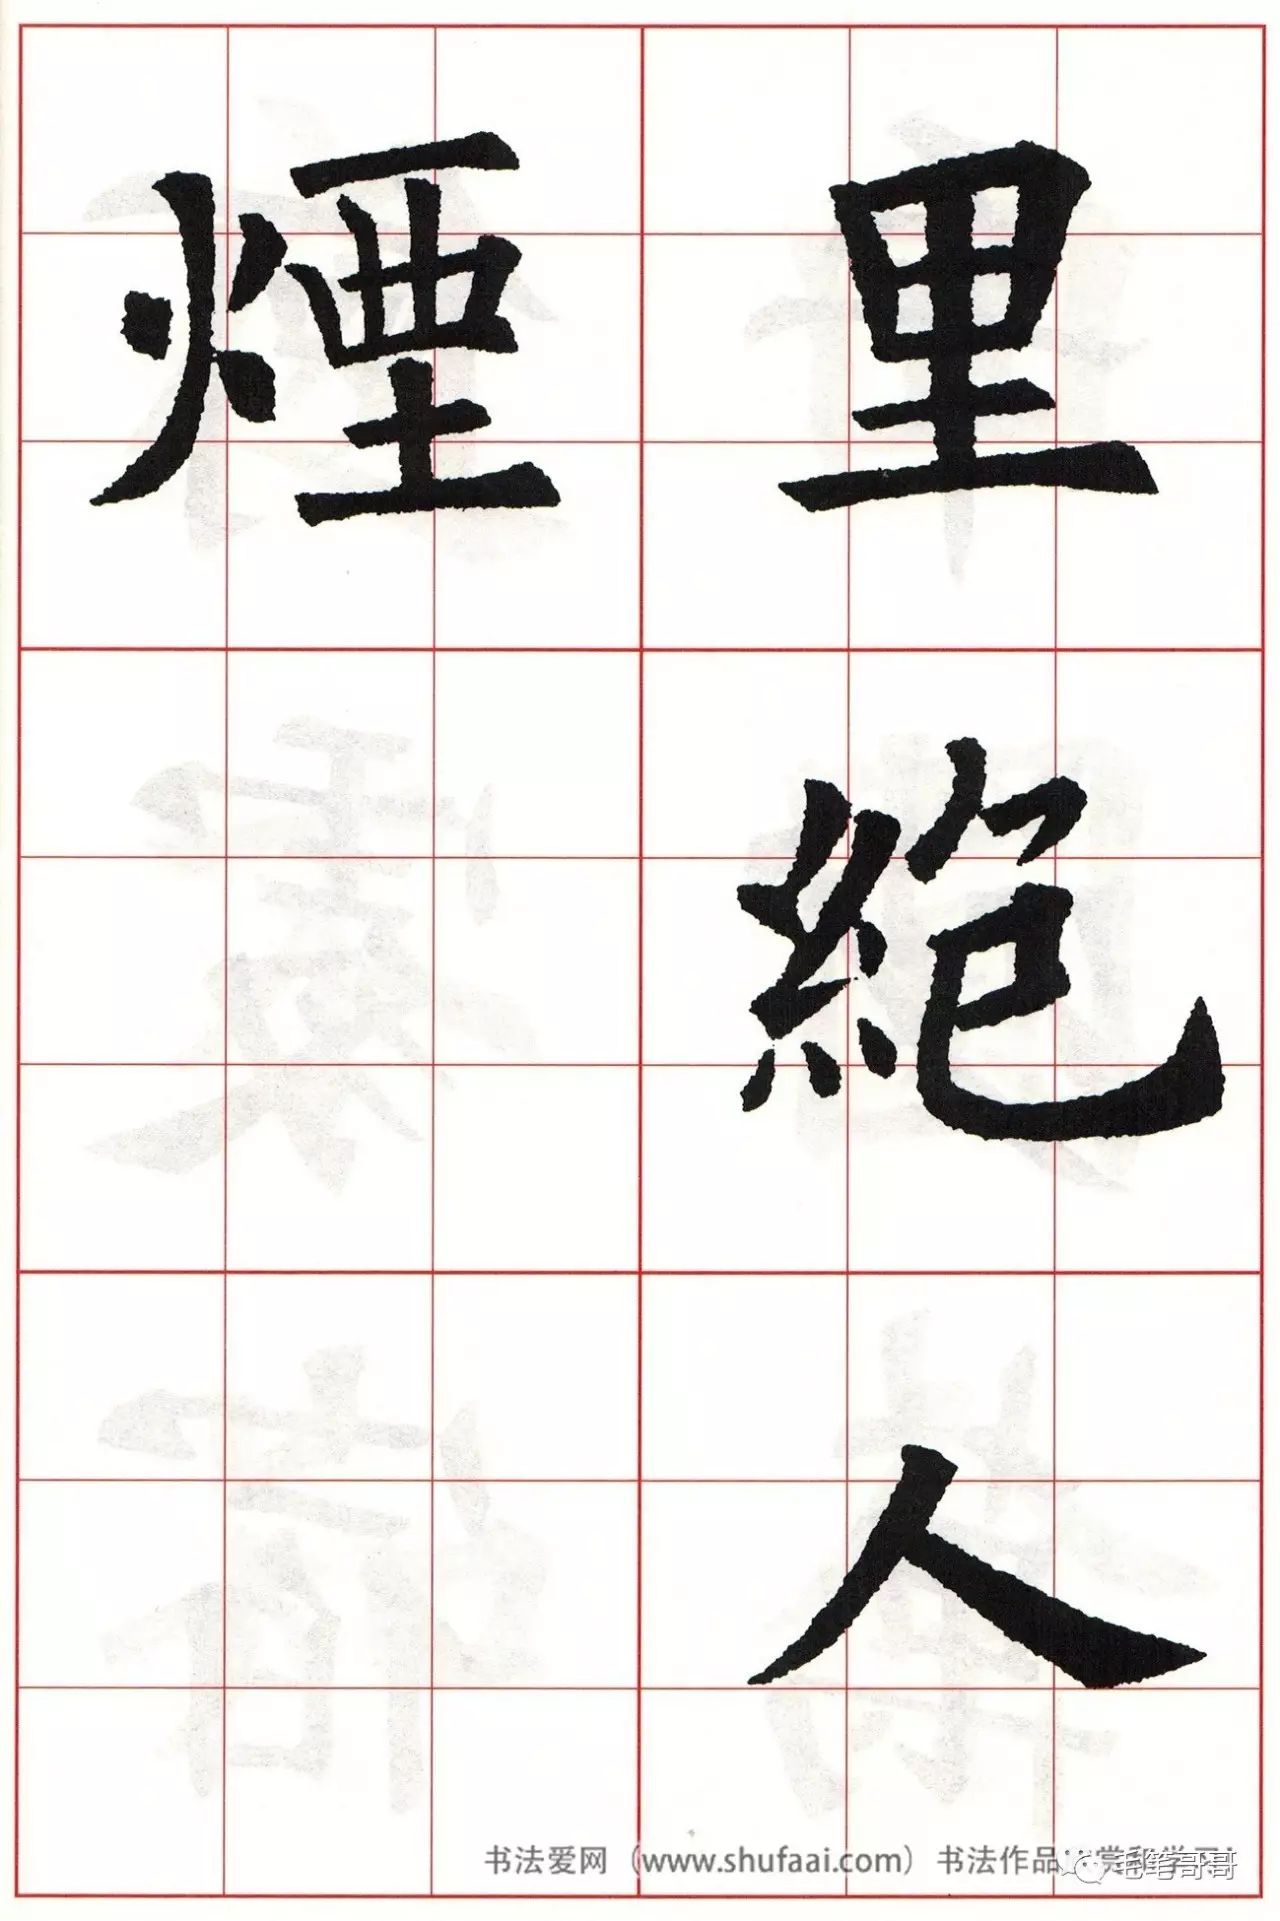 里絕人
煙
书法爱网（www.shufaai.com）书法作品赏和学习
毛笔哥哥